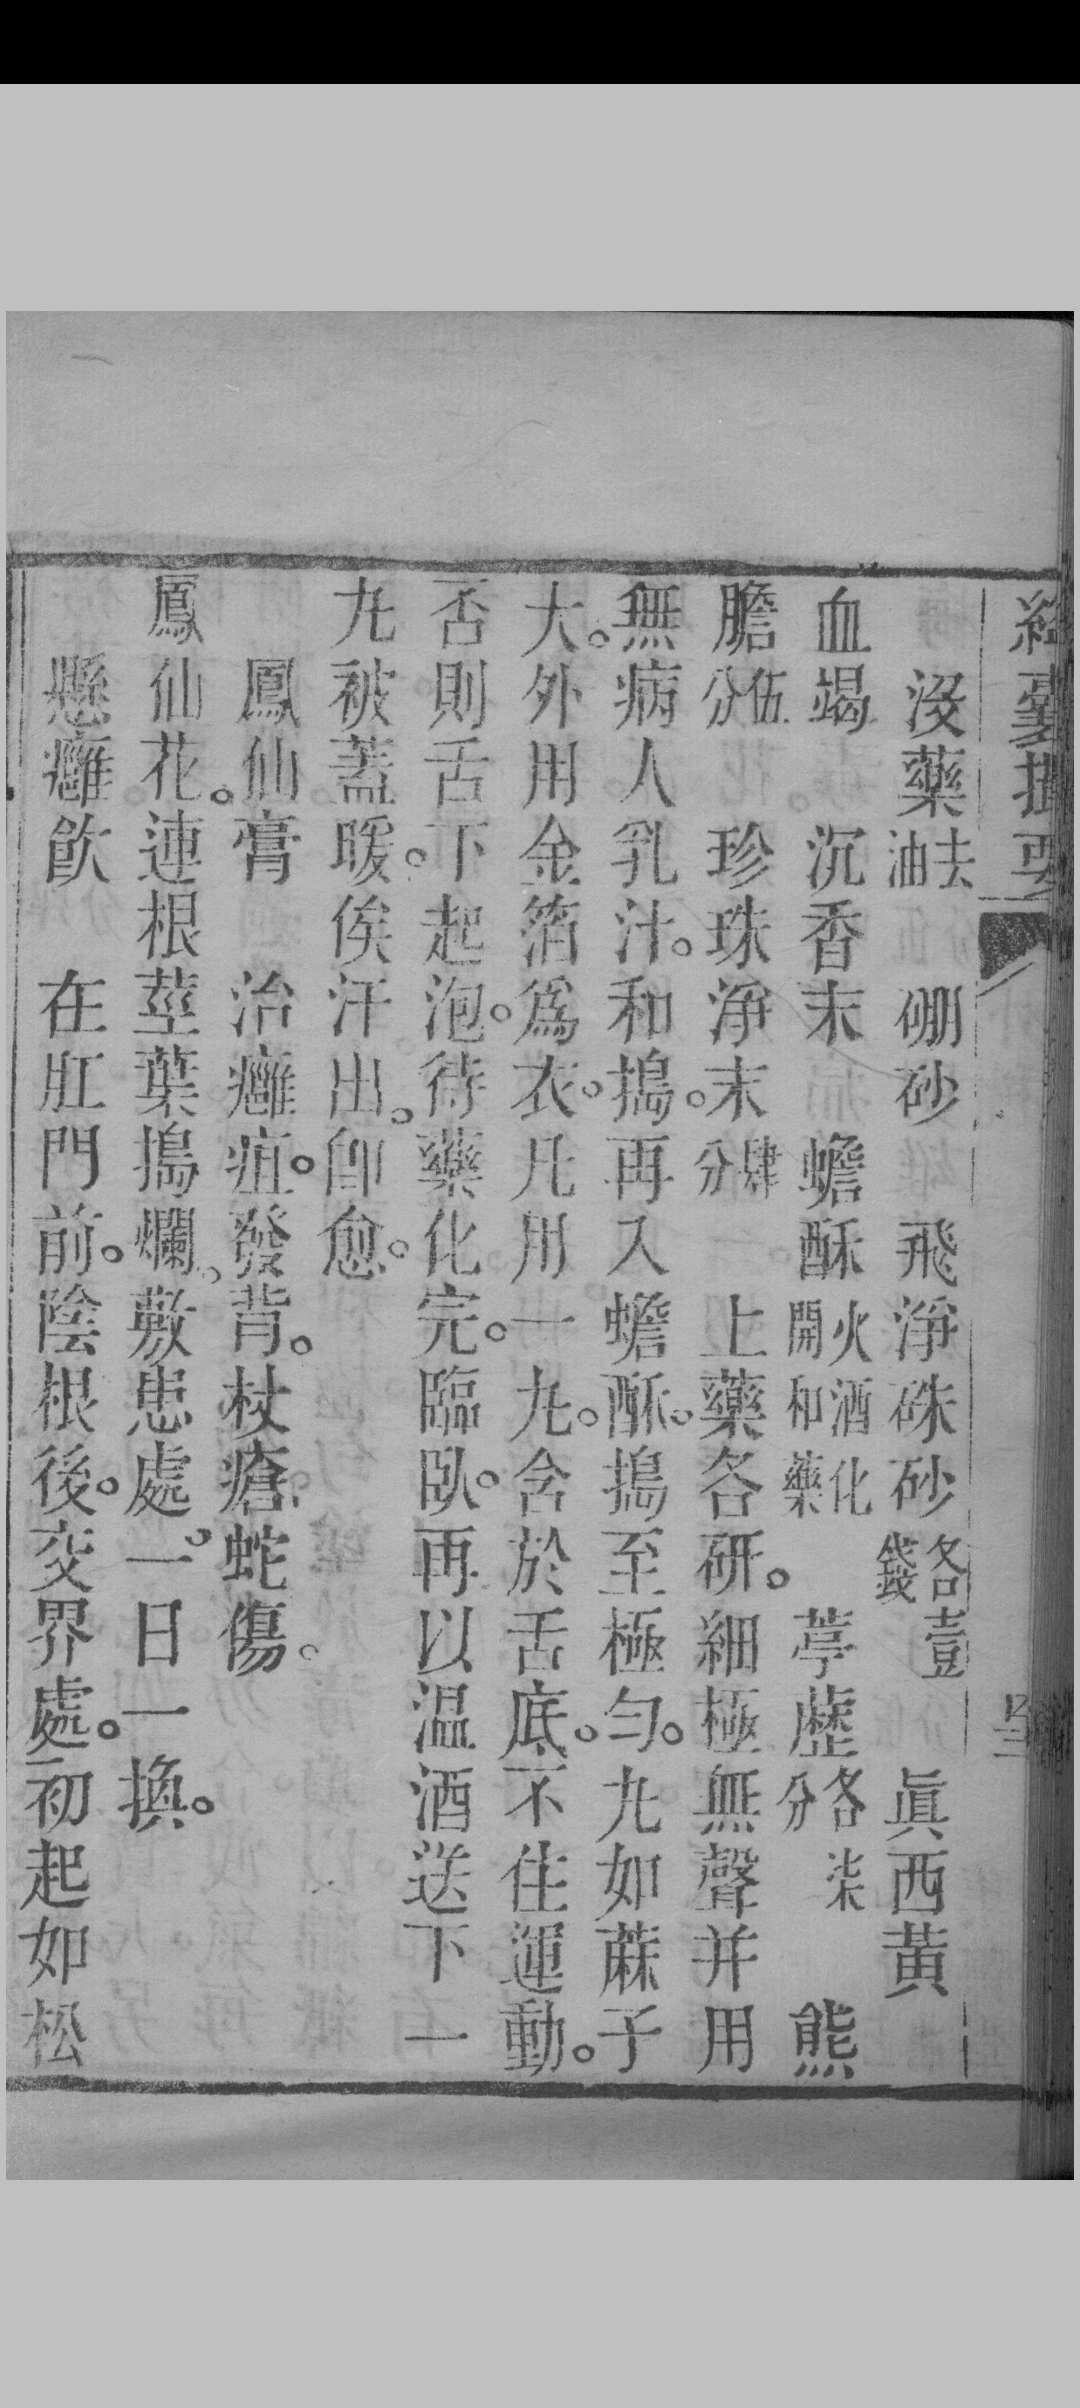 沒藥去油　硼砂　飛淨硃砂各壹錢　眞西黃
血竭　沉香末　蟾酥火酒化開和藥　葶藶各柒分　熊
膽伍分　珍珠淨末肆分　上藥各研。細極無聲并用
無病人乳汁。和搗。再入蟾酥。搗至極勻。丸如蔴子
大。外用金箔爲衣。凡用一丸。含於舌底。不住運動。
否則舌下起泡。待藥化完。臨臥。再以温酒送下一
丸被蓋暖。俟汗出。卽愈。
鳳仙膏　治癰疽。發背。杖瘡。蛇傷。
鳳仙花。連根莖葉搗爛。敷患處。一日一換。
懸癰飲　在肛門前。陰根後。交界處。初起如松